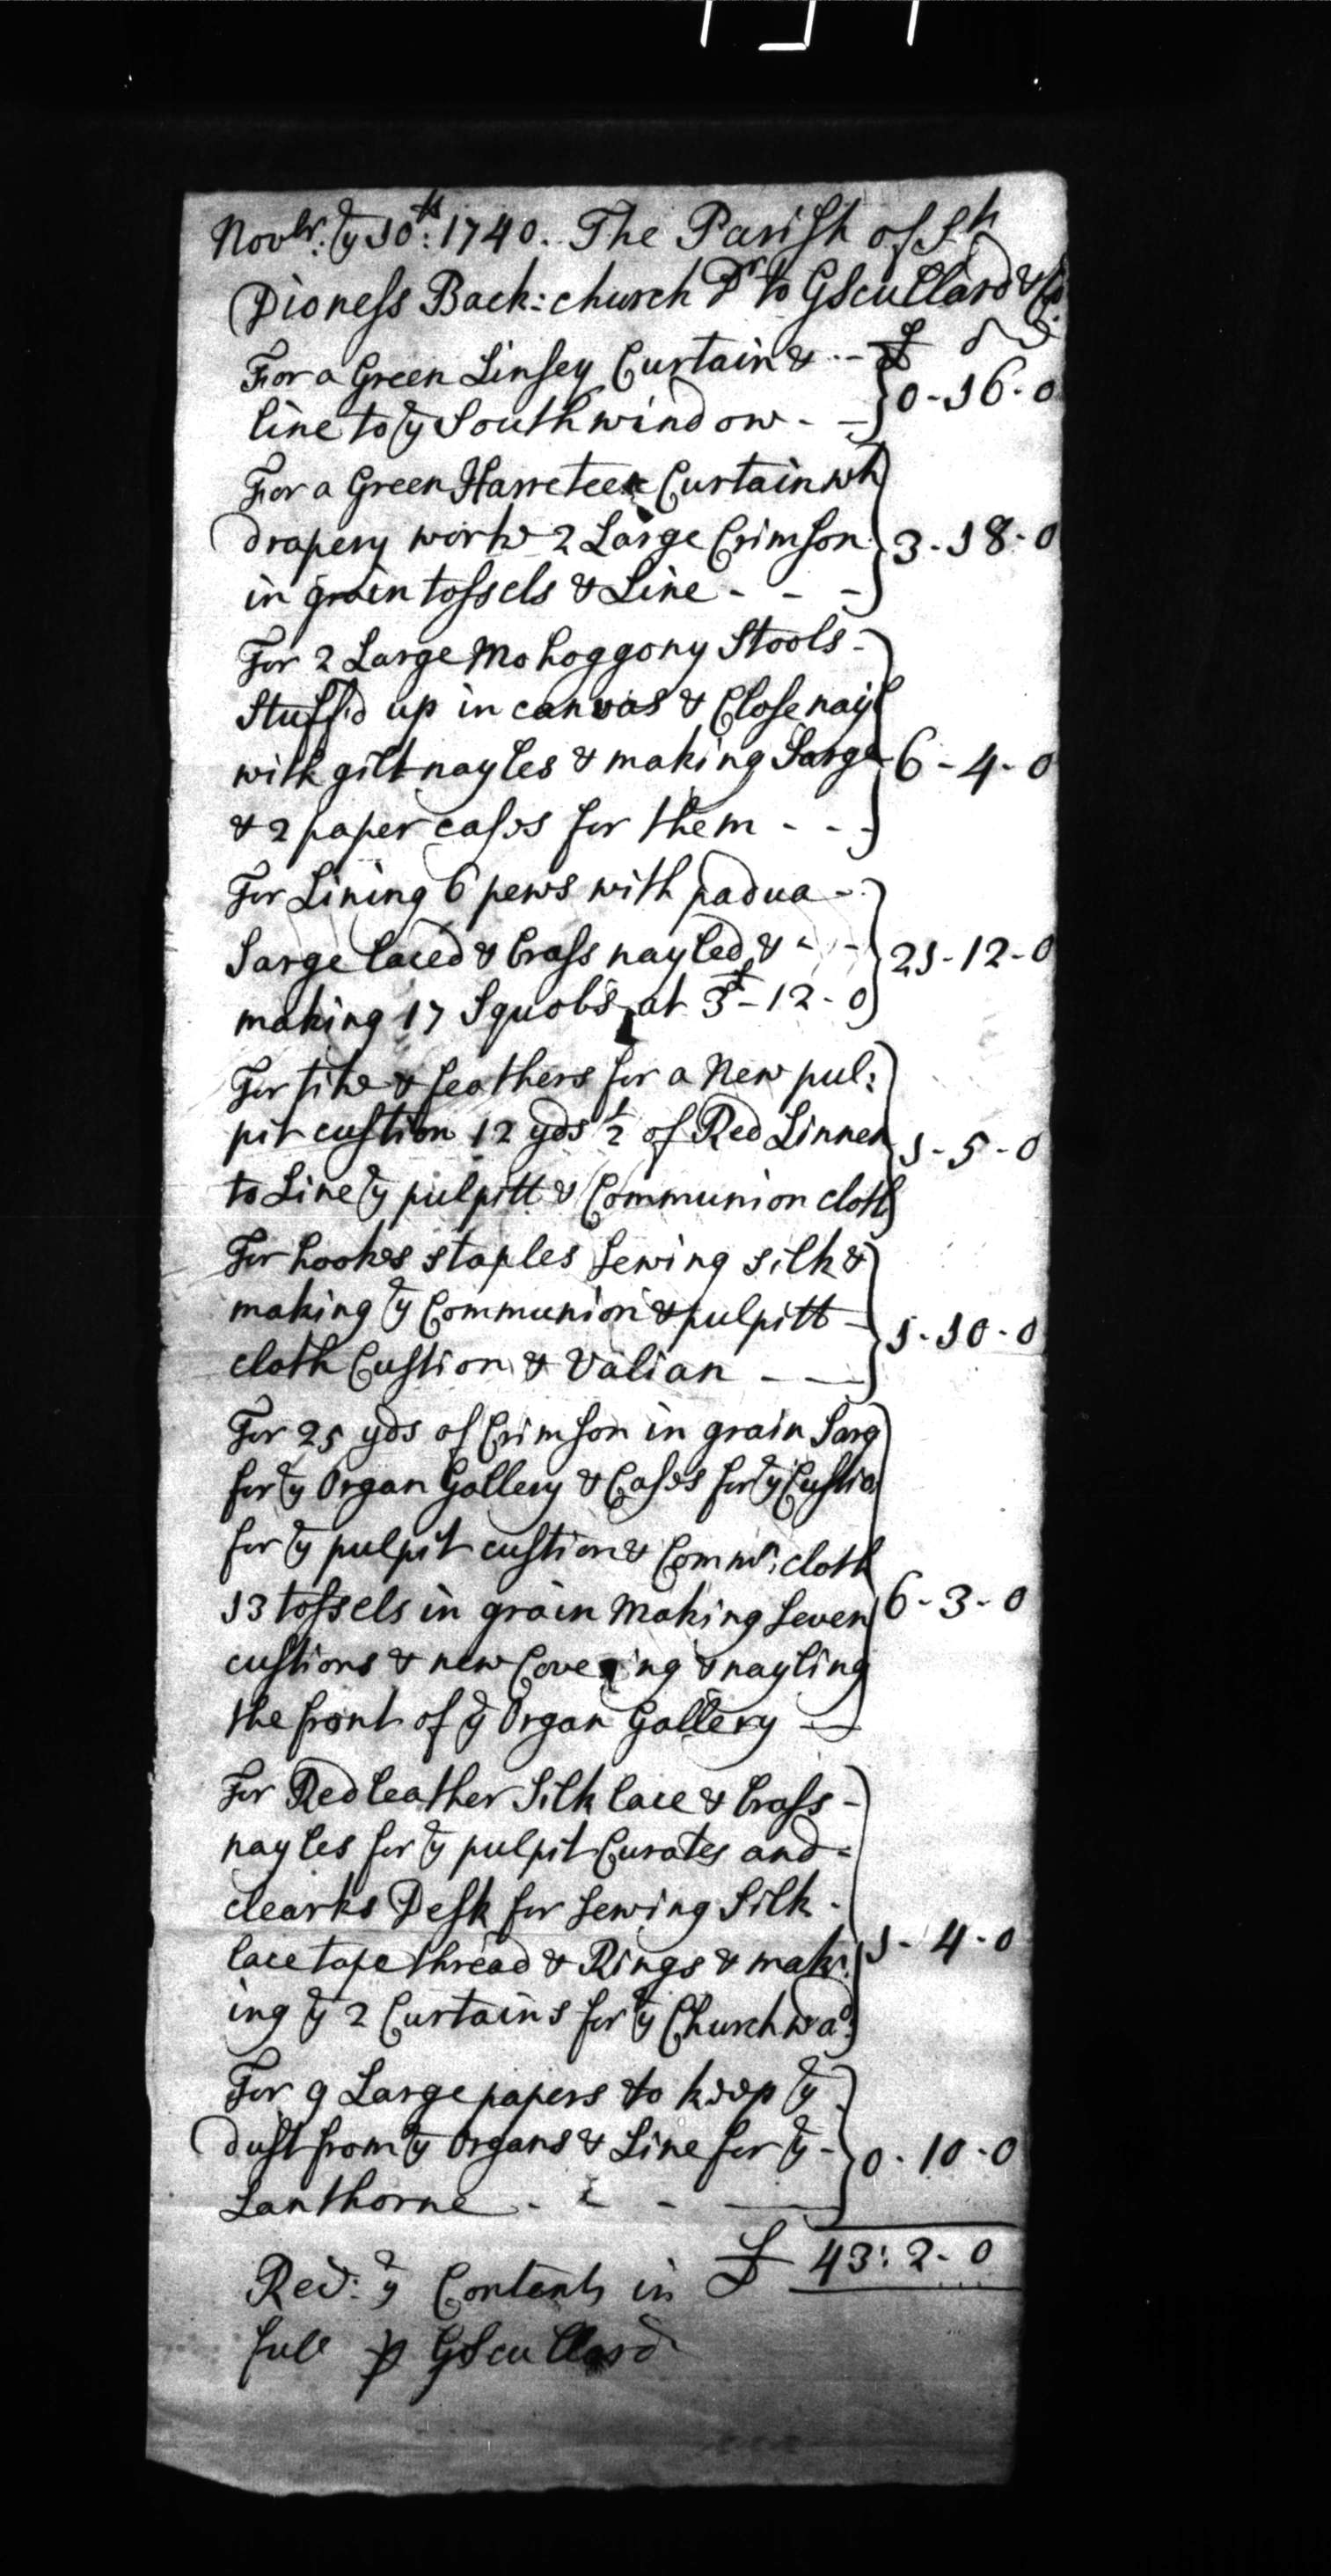 Novbr: ye 10th: 1740. The Parish of St
Dioness Back: church Dr to GScullard & Co
£ s d
For a Green Linsey Curtain & --
line to ye South window - - 0-16-0
For a Green Harreteen Curtain wth
drapery work 2 Large Crimson 3-18-0
in grain tossels & Line - - -
For 2 Large Mohoggony Stools -
Stuff'd up in canvas & Close nayl
with gilt nayles & making Sarge 6-4-0
& 2 paper cases for them - - -
For Lining 6 pews with padua -
Sarge laced & brass nayled & - - 21-12-0
making 17 Squobs at 3£-12-0
For tike & feathers for a New pul:
pit custion 12 yds ½ of Red Linnen 1-5-0
to Line ye pulpitt & Communion cloth
For hookes staples Sewing silk &
making ye Communion & pulpitt - 1-10-0
cloth Custion & Valian - -
For 25 yds of Crimson in grain Sarg
for ye Organ Gallery & Cases for ye Custio
for ye pulpit custion & Commn: cloth
13 tossels in grain Making Seven 6-3-0
custions & new Covering & nayling
the front of ye Organ Gallery -
For Red leather Silk lace & brass -
nayles for ye pulpit Curates and -
clearks Desk for Sewing Silk -
lace tape thread & Rings & mak: 1-4-0
ing ye 2 Curtains for ye Churchwad:
For 9 Large papers to keep ye
dust from ye Organs & Line for ye - 0-10-0
Lanthorne - - - -
Recd: ye Contents in £ 43:2-0
full p GScullard